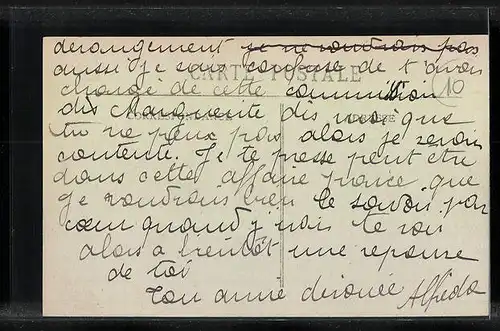 derangement je ne voudrais pas
aussi je suis confuse de t'avoir
CARTE POSTALE
chargé de cette commission 10
dis Marguerite dis moi que
tu ne peux pas alors je serais
contente. Je te presse peut etre
dans cette affaire parce que
je voudrais bien le savoir par
cœur quand j'irais te voir
alors a bientôt une reponse
de toi
Ton amie dévouée Alfréda